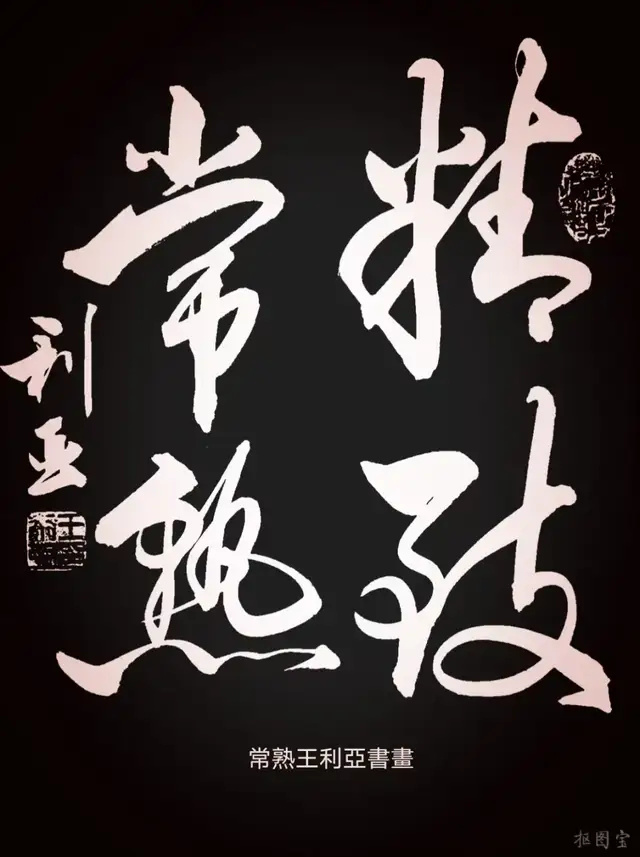 精致
常熟
利亚
常熟王利亞書畫
抠图宝